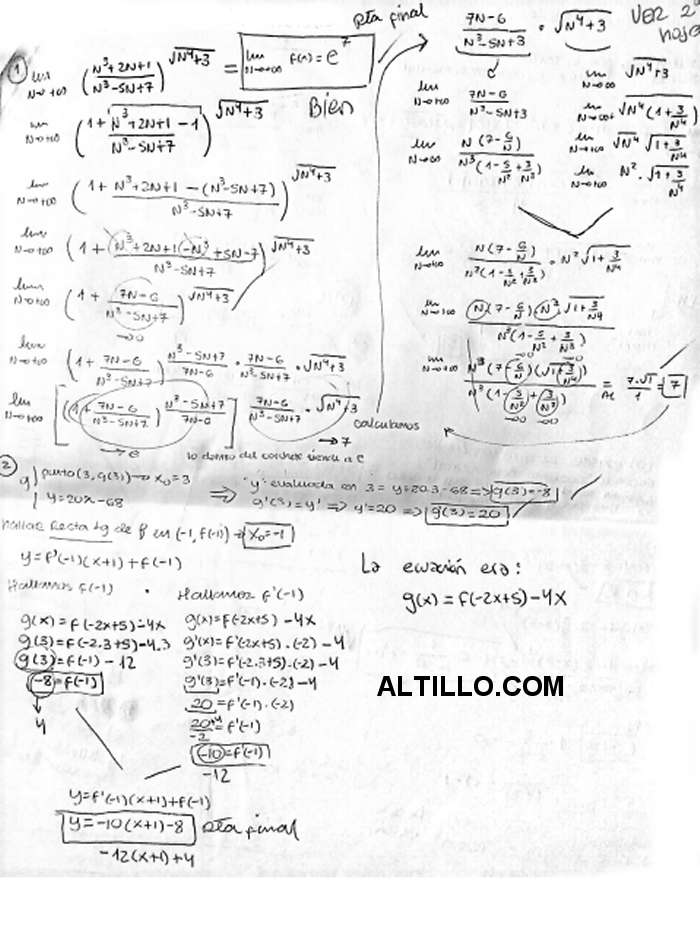 ① lim N→+∞ (N³+2N+1 / N³-5N+7)^√N⁴+3 = lim N→+∞ f(n) = e⁷
Rta final
Bien
lim N→+∞ (1 + N³+2N+1 / N³-5N+7 - 1)^√N⁴+3
lim N→+∞ (1 + N³+2N+1 - (N³-5N+7) / N³-5N+7)^√N⁴+3
lim N→+∞ (1 + N³+2N+1 -N³ +5N-7 / N³-5N+7)^√N⁴+3
lim N→+∞ (1 + 7N-6 / N³-5N+7)^√N⁴+3
→0
lim N→+∞ (1 + 7N-6 / N³-5N+7)^ N³-5N+7 / 7N-6 · 7N-6 / N³-5N+7 · √N⁴+3
lim N→+∞ [(1 + 7N-6 / N³-5N+7)^ N³-5N+7 / 7N-6] 7N-6 / N³-5N+7 · √N⁴+3
→e
→7
calculamos
lo dentro del corchete tiende a e
7N-6 / N³-5N+3 · √N⁴+3
VER 2ª hoja
lim N→+∞ 7N-6 / N³-5N+3
lim N→+∞ √N⁴+3
lim N→+∞ √N⁴(1+3/N⁴)
lim N→+∞ N(7-6/N) / N³(1-5/N²+3/N³)
lim N→+∞ √N⁴ √1+3/N⁴
lim N→+∞ N² · √1+3/N⁴
lim N→+∞ N(7-6/N) / N³(1-5/N²+3/N³) · N² √1+3/N⁴
lim N→+∞ N(7-6/N) · N² · √1+3/N⁴ / N³(1-5/N²+3/N³)
lim N→+∞ N³(7-6/N)(√1+3/N⁴) / N³(1-5/N²+3/N³) = AL 7·√1 / 1 = 7
→0 →0
② g punto (3, g(3)) → x₀=3
y=20x-68
⇒ "y" evaluada en 3 = y=20.3-68 => g(3)=-8
⇒ g'(3)=y' => y'=20 => g'(3)=20
Hallar Recta tg de f en (-1, f(-1)) → x₀=-1
y=f'(-1)(x+1)+f(-1)
Hallamos f(-1) · Hallamos f'(-1)
g(x)=f(-2x+5)-4x
g(3)=f(-2.3+5)-4.3
g(3)=f(-1)-12
-8=f(-1)
4
g(x)=f(-2x+5)-4x
g'(x)=f'(-2x+5).(-2)-4
g'(3)=f'(-2.3+5).(-2)-4
g'(3)=f'(-1).(-2)-4
20=f'(-1).(-2)
20+4 / -2 = f'(-1)
-10=f'(-1)
-12
La ecuación era:
g(x)=f(-2x+5)-4x
ALTILLO.COM
y=f'(-1)(x+1)+f(-1)
y=-10(x+1)-8 Rta final
-12(x+1)+4